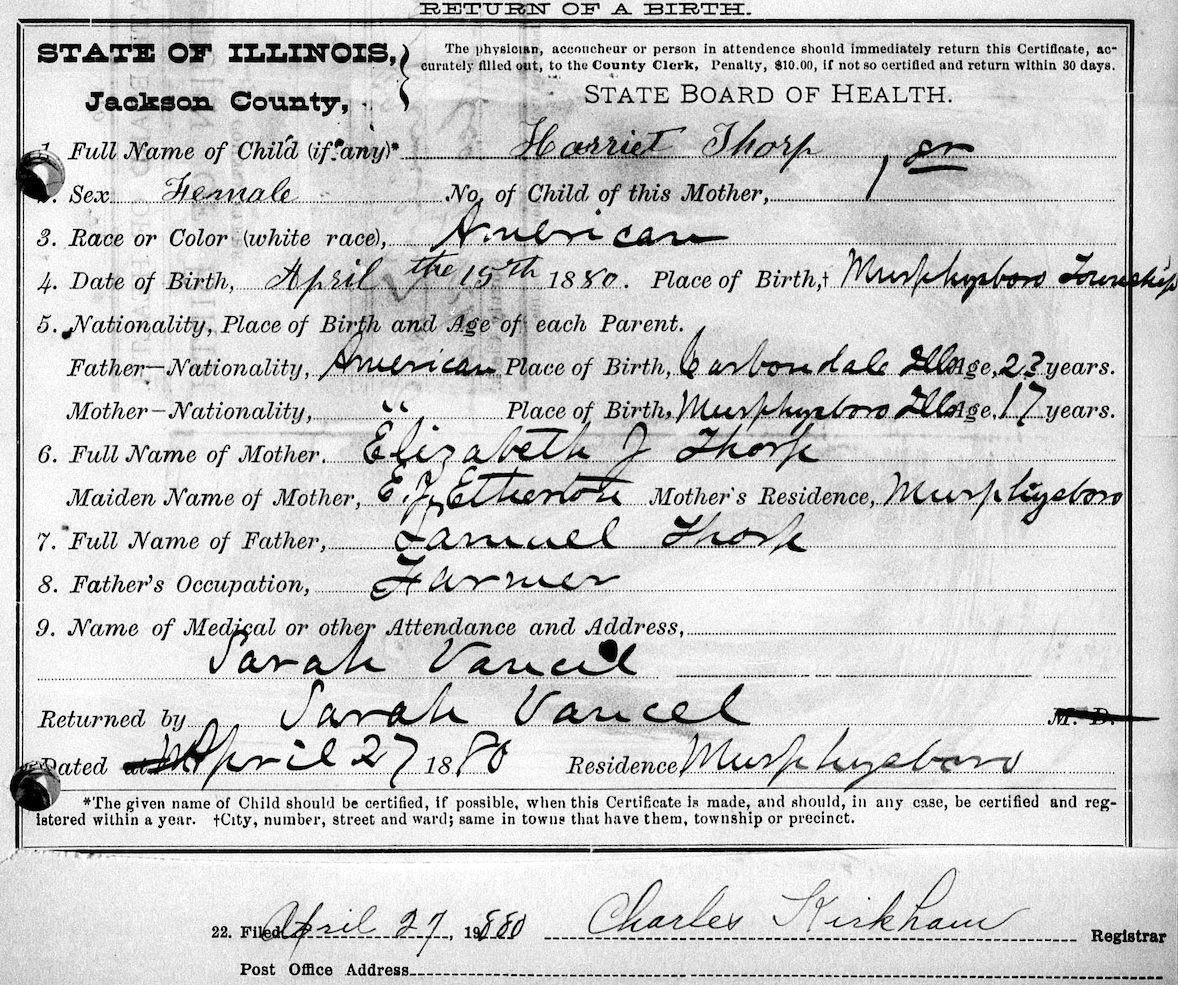 RETURN OF A BIRTH.
STATE OF ILLINOIS,
Jackson County,
The physician, accoucheur or person in attendence should immediately return this Certificate, ac-
curately filled out, to the County Clerk, Penalty, $10.00, if not so certified and return within 30 days.
STATE BOARD OF HEALTH.
1. Full Name of Child (if any)* Harriet Thorp
Sex Female No. of Child of this Mother, 1
3. Race or Color (white race), American
4. Date of Birth, April the 15th 1880. Place of Birth,† Murphysboro Township
5. Nationality, Place of Birth and Age of each Parent.
Father—Nationality, American Place of Birth, Carbondale Ills Age, 23 years.
Mother—Nationality, " Place of Birth, Murphysboro Ills Age, 17 years.
6. Full Name of Mother. Elizabeth J Thorp
Maiden Name of Mother, E. J. Etherton Mother's Residence, Murphysboro
7. Full Name of Father, Samuel Thorp
8. Father's Occupation, Farmer
9. Name of Medical or other Attendance and Address,
Sarah Vancil
Returned by Sarah Vancel M. D.
Dated April 27 1880 Residence Murphysboro
*The given name of Child should be certified, if possible, when this Certificate is made, and should, in any case, be certified and reg-
istered within a year. †City, number, street and ward; same in towns that have them, township or precinct.
22. Filed April 27, 1880 Charles Kirkham Registrar
Post Office Address